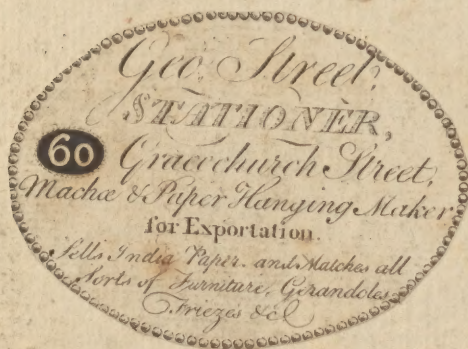 Geo. Street,
STATIONER,
60 Gracechurch Street,
Machœ & Paper Hanging Maker
for Exportation.
Sells India Paper. and Matches all
Sorts of Furniture, Gerandoles
Friezes &c